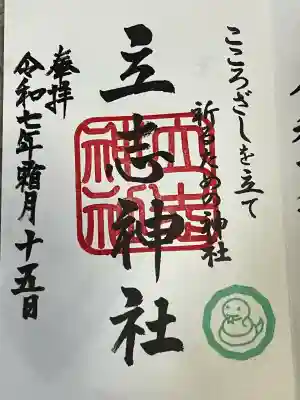 こころざしを立て
祈るための神社
立志神社
立志
神社
奉拝
令和七年霜月十五日